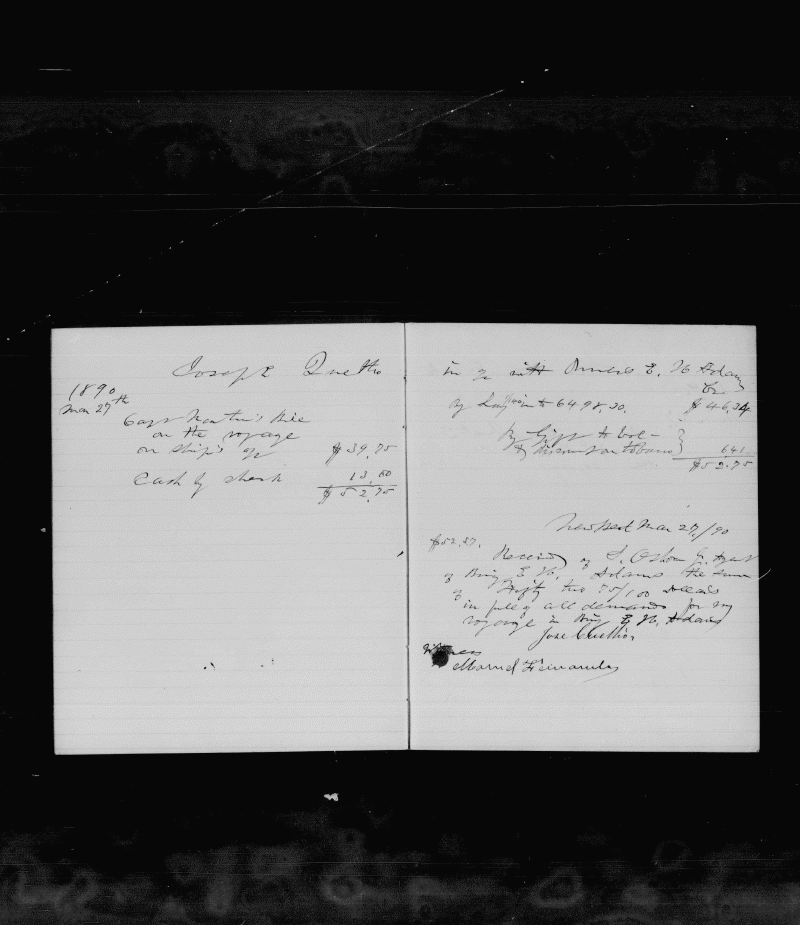 Joseph Quetho
1890
Mar 27th
Capt Bill
on the voyage
on Ship's a/c $39,75
Cash of check 13,00
$52,75
in a/c with Owners E. H. Adams
Cr
By Lay on $6498.20. $46,34
By Gift to bal-
& discount on tobacco 6.41
$52.75
New Bed Mar 27,/90
$52.
Received of S. Osborn Jr. Agent
of Brig E. H. Adams the sum
of Fifty two 75/100 Dollars
in full of all demands for my
voyage in Brig E. H. Adams
Jose
Witness
Manuel Fernandes